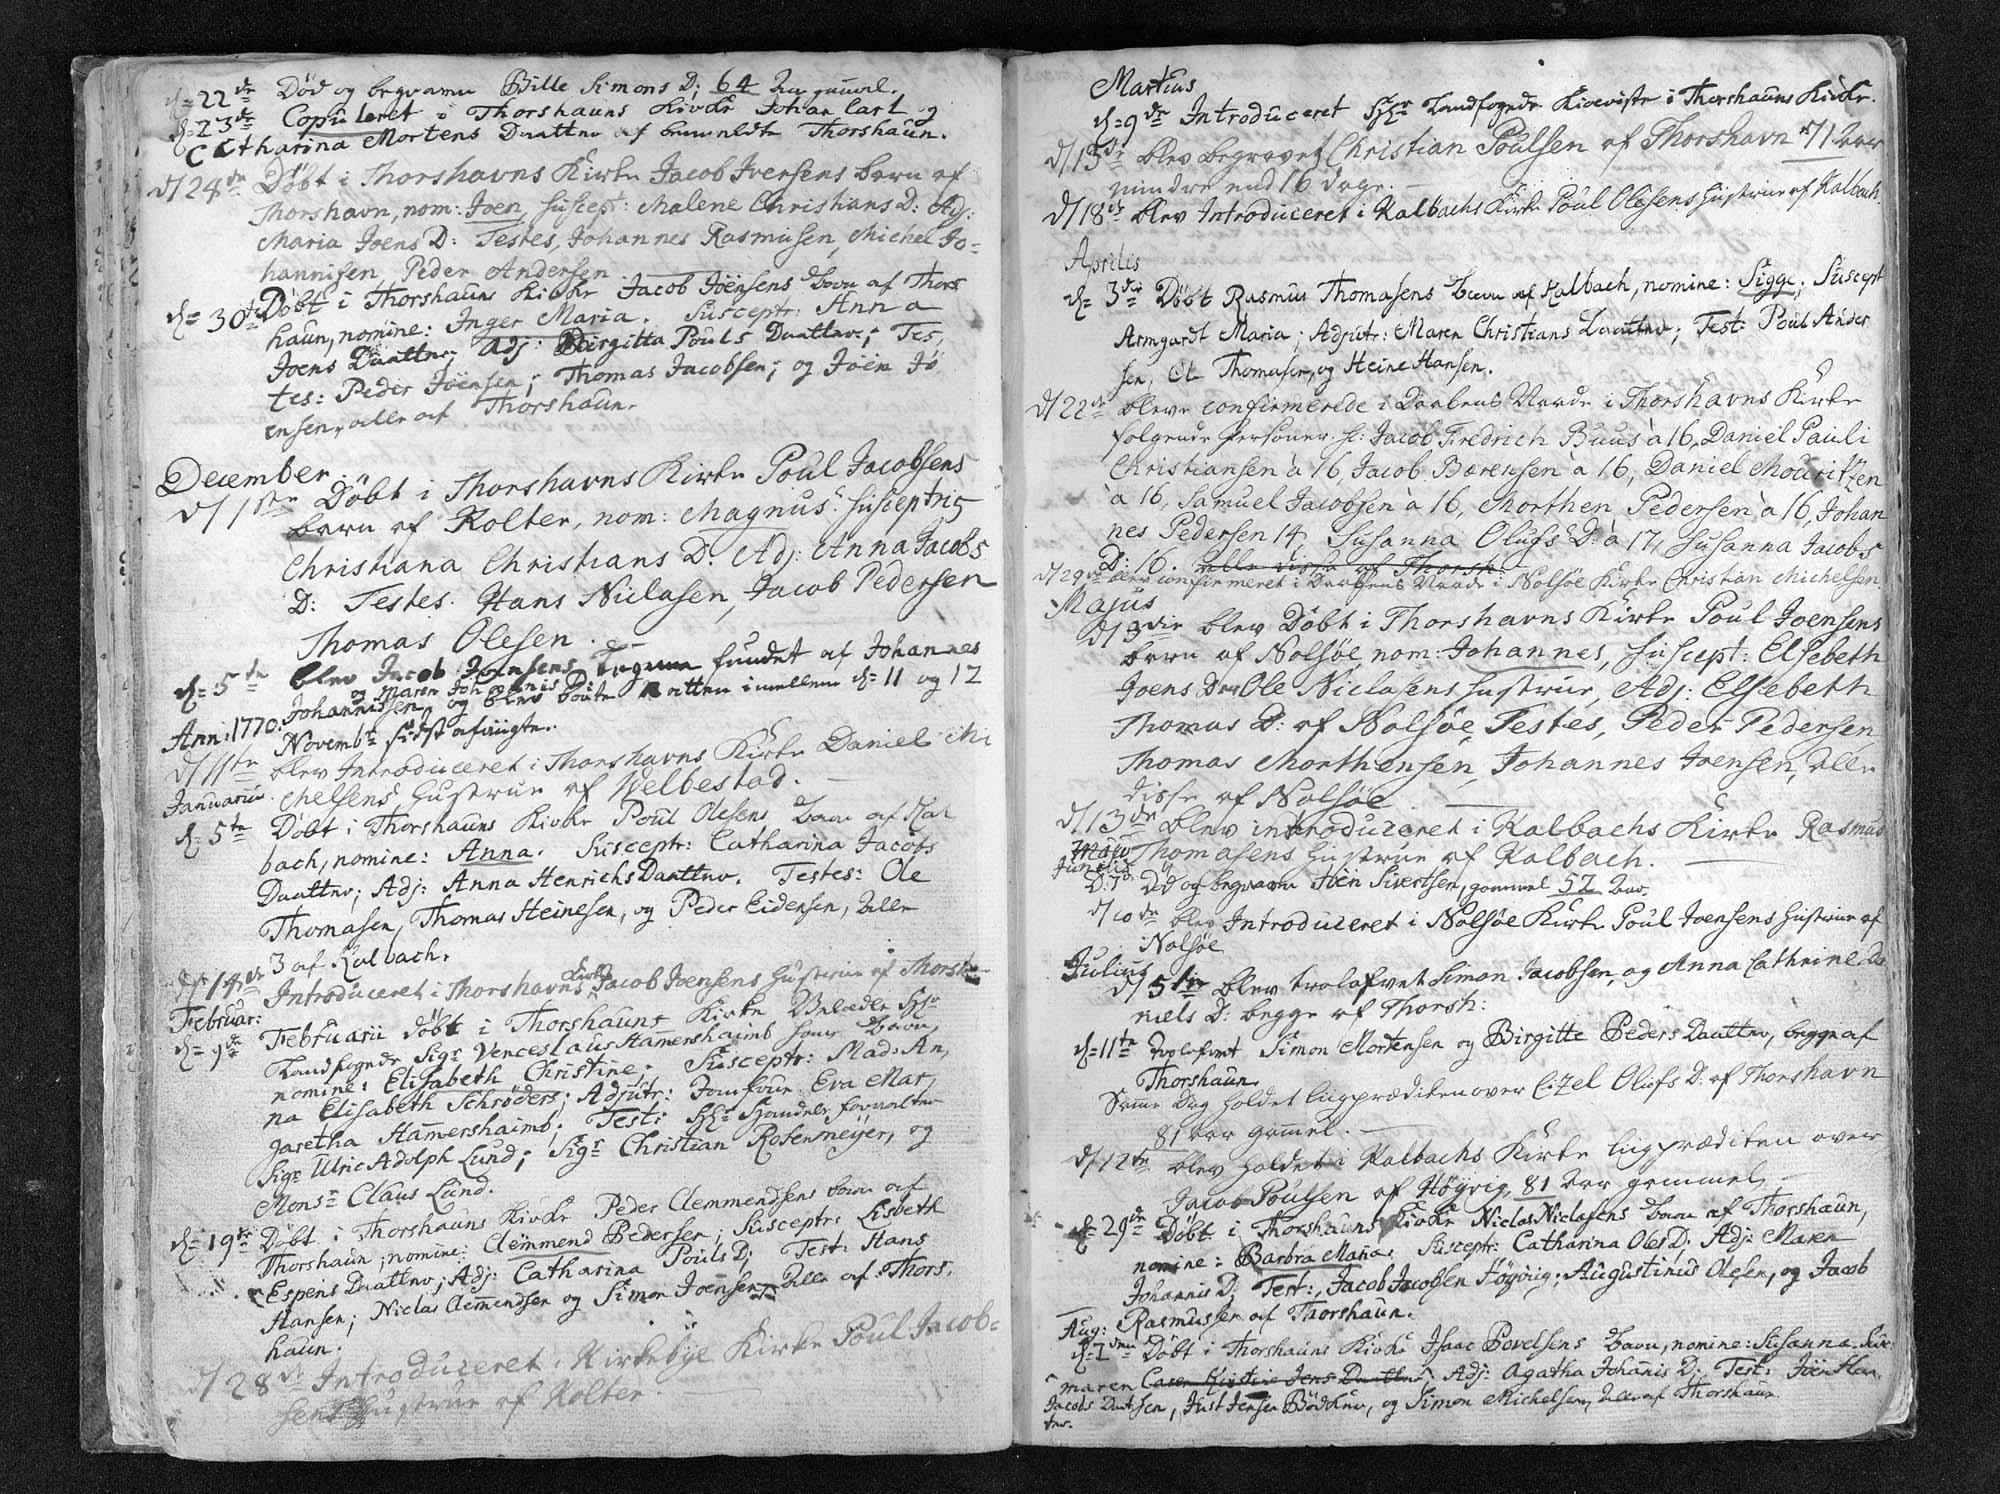 d: 22de Död og begraven Bille Simons D; 64 Aar gammel.
d: 23de Copuleret i Thorshauns Kirke Johan Carl og
Catharina Mortens Daatter af bemeldte Thorshaun.
d/24de Döbt i Thorshavns Kirke Jacob Iversens barn af
Thorshavn, nom: Joen, Suscept: Malene Christians D: Adj:
Maria Joens D: Testes, Johannes Rasmusen, Michel Jo-
hannisen, Peder Andersen
d: 30te Döbt i Thorshauns Kirke Jacob Jöensens Barn af Thors
haun, nomine: Inger Maria. Susceptr: Anna
Joens Daatter; Adj: Birgitta Pouls Daatter; Tes,
tes: Peder Jöensen; Thomas Jacobsen; og Jöen Jö
ensen, alle af Thorshaun.
December
d/1ste Döbt i Thorshavns Kirke Poul Jacobsens
barn af Kolter, nom: Magnus: Susceptris
Christiana Christians D. Adj: Anna Jacobs
D: Testes. Hans Niclasen, Jacob Pedersen
Thomas Olesen.
d: 5te blev Jacob Joensens fundet af Johannes
og Maren Johannis D:
Johannissen, og blev borte Natten imellem d: 11 og 12
Novembr sidst afvigte.
Ann: 1770.
d/11te blev Introduceret i Thorshavns Kirke Daniel Mi
chelsens Hustrue af Welbestad.
Januarii
d: 5te Döbt i Thorshauns Kirke Poul Olesens Barn af Kal
bach, nomine: Anna. Susceptr: Catharina Jacobs
Daatter; Adj: Anna Henrichs Daatter. Testes: Ole
Thomasen, Thomas Heinesen, og Peder Eidensen, alle
3 af Kalbach.
d/14de Introduceret i Thorshavns Kirke Jacob Joensens Hustrue af Thorsh
Februar:
d: 9de Februarii döbt i Thorshauns Kirke Velædle Hr
Landfogede Sigr Venceslaus Hammershaimb hans Barn,
nomine: Elisabeth Christine; Susceptr: Mad: An,
na Elisabeth Schröders; Adjutr: Jomfrue Eva Mar,
garetha Hammershaimb; Test: Hr Handels forvalter
Sigr Ulric Adolph Lund; Sigr Christian Rosenmeyer, og
Monsr Claus Lund.
d: 19de Döbt i Thorshauns Kirke Peder Clemmendsens barn af
Thorshaun; nomine: Clemmend Pedersen, Susceptr: Lisbeth
Espens Daatter; Adj: Catharina Pouls D; Test: Hans
Hansen; Niclas Clemmendsen og Simon Joensen, alle af Thors,
haun.
d/28de Introduceret i Kirkebye Kirke Poul Jacob-
sens Hustrue af Kolter
Martius
d: 9de Introduceret Hr Landfogeds Kiereste i Thorshauns Kirke.
d/13de blev begravet Christian Poulsen af Thorshavn 71 Aar
mindre end 16 dage.
d/18de blev Introduceret i Kalbachs Kirke Poul Olesens Hustrue af Kalbach.
Aprilis
d: 3de Döbt Rasmus Thomasens Barn af Kalbach, nomine: Sigge; Suscept
Armgardt Maria; Adjutr: Maren Christians Daatter; Test: Poul Ander
sen, Ole Thomasen, og Heine Hansen.
d/22de bleve confirmerede i Daabens Naade i Thorshavns Kirke
folgende Personer. s: Jacob Fredrich Buus à 16, Daniel Pauli
Christiansen à 16, Jacob Bærensen à 16, Daniel Mouritzen
à 16, Samuel Jacobsen à 16, Morthen Pedersen à 16, Johan
nes Pedersen 14, Susanna Olufs D: à 17, Susanna Jacobs
D: 16. alle disse af Thorsh:
d/29de blev confirmeret i Daabens Naade i Nolsöe Kirke Christian Michelsen.
Majus
d/3die blev Döbt i Thorshavns Kirke Poul Joensens
barn af Nolsöe, nom: Johannes, Suscept: Elsebeth
Joens Dar Ole Niclasens Hustrue, Adj: Elsebeth
Thomas D: af Nolsöe, Testes, Peder Pedersen
Thomas Morthensen, Johannes Joensen, alle
disse af Nolsöe.
d/13de blev introduceret i Kalbachs Kirke Rasmus
Thomasens Hustrue af Kalbach.
Maji
Junii
D: 7 Död og begraven Jöen Sivertsen, gammel 52 Aar.
d/10de blev Introduceret i Nolsöe Kirke Poul Joensens Hustrue af
Nolsöe
Julius
d/5te blev trolofvet Simon Jacobsen, og Anna Cathrine Da
niels D: begge af Thorsh:
d: 11te Trolofvet Simon Mortensen og Birgitte Peders Daatter, begge af
Thorshaun.
Samme Dag holdet liigprædiken over Citzel Olufs D: af Thorshavn
81 aar gammel.
d/12te blev holdet i Kalbachs Kirke liigprædiken over
Jacob Poulsen af Höyvig, 81 aar gammel,
d: 29de Döbt i Thorshauns Kirke Niclas Niclasens Barn af Thorshaun,
nomine: Barbra Maria. Susceptr: Catharina Oles D. Adj: Maren
Johannis D; Test: Jacob Jacobsen Höyvig; Augustinus Olesen, og Jacob
Rasmussen af Thorshaun.
Aug:
d: 2den Döbt i Thorshauns Kirke Isaac Povelsens Barn, nomine: Susanna. Sus:
maren Caren Kirstine Jens Daatter; Adj: Agatha Johannis D; Test: Jöen Han-
Jacobs Daat sen, Just Jensen Bödker, og Simon Michelsen, alle af Thorshaun.
ter.